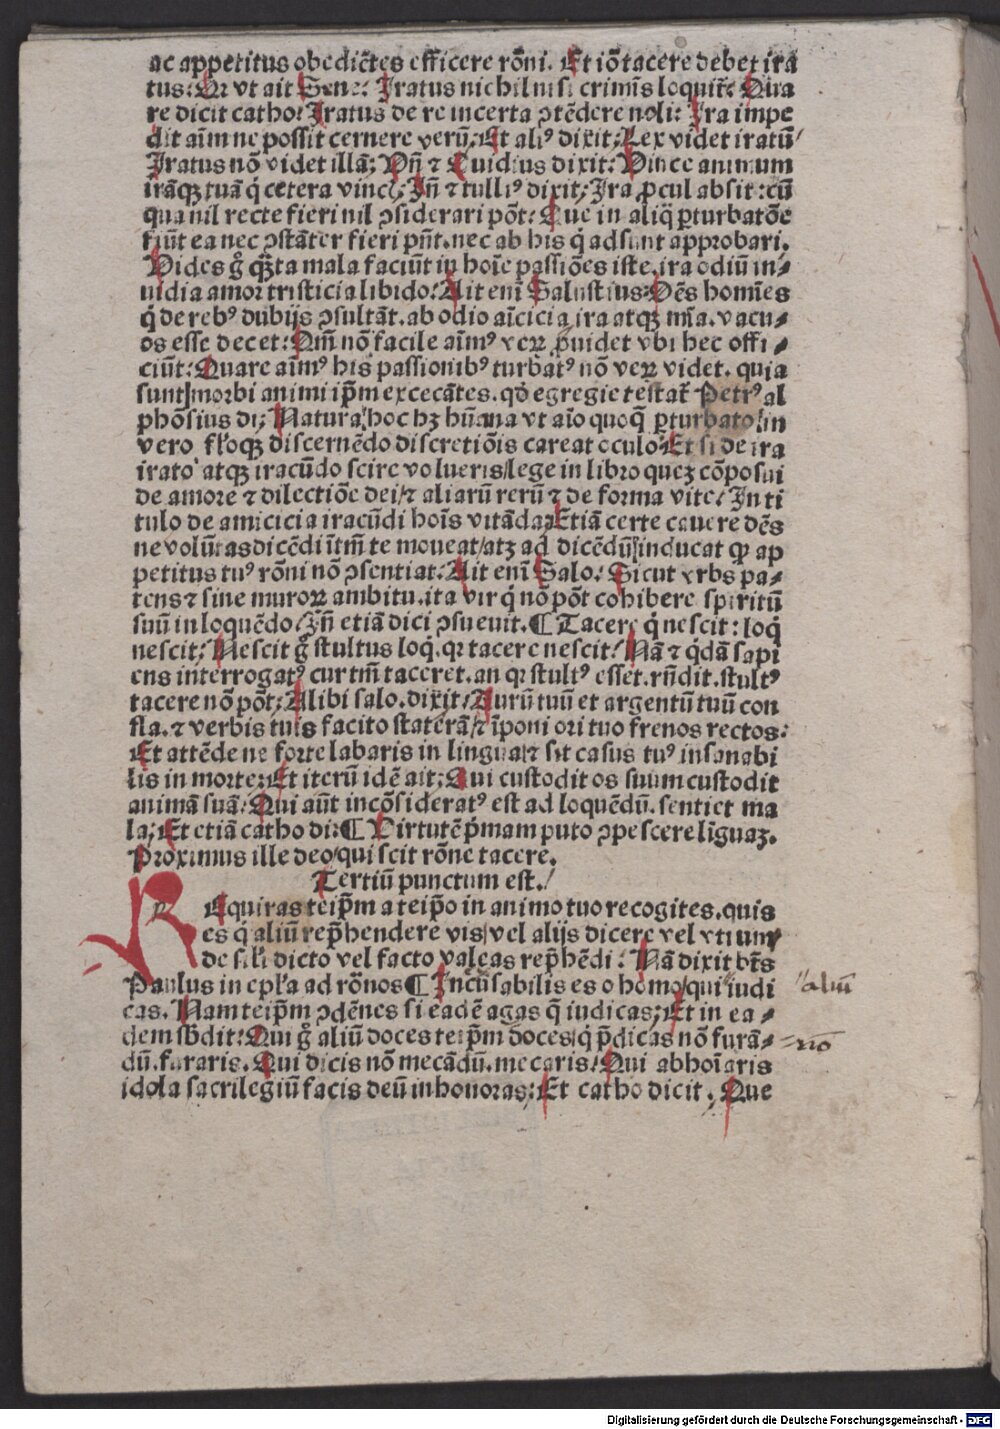 ac appetitus obediẽtes efficere rõni. Et iõ tacere debet ira
tus: Qr vt ait Sene: Iratus nichil nisi crimis loquit̃: Qua
re dicit catho: Iratus de re incerta ꝯtẽdere noli: Ira impe
dit aĩm ne possit cernere verũ; Et aliꝰ dixit: Lex videt iratũ/
Iratus nõ videt illã; Vñ ⁊ Ouidius dixit: Vince animum
irãqꝫ tuã q̇ cetera vincis; Iñ ⁊ tulliꝰ dixit; Ira ꝓcul absit: cũ
qua nil recte fieri nil ꝯsiderari põt: Que in aliq̃ ꝑturbatõe
fiũt ea nec ꝯstãter fieri pñt. nec ab his q̇ adsunt approbari.
Vides g̊ q̃ta mala faciũt in hoĩe passiões iste. ira odiũ in⸗
uidia amor tristicia libido: Ait enĩ Salustius: Oẽs homĩes
q̇ de rebꝰ dubijs ꝯsultãt. ab odio aĩcicia ira atqꝫ mĩa. vacu⸗
os esse decet: Qm̃ nõ facile aĩmꝰ veꝝ ꝓuidet vbi hec offi⸗
ciũt: Quare aĩmꝰ his passionibꝰ turbatꝰ nõ veꝝ videt. quia
sunt morbi animi ip̃m excecãtes. qđ egregie testat̃ Petrꝰ al
phõsius di; Natura hoc hꝫ hũana vt aĩo quoq̃ ꝑturbato in
vero fl̃oqꝫ discernẽdo discretiõis careat oculo: Et si de ira
irato atqꝫ iracũdo scire volueris/lege in libro queꝫ cõposui
de amore ⁊ dilectiõe dei/⁊ aliarũ rerũ ⁊ de forma vite: In ti
tulo de amicicia iracũdi hoĩs vitãda; Etiã certe cauere dẽs
ne volũtas dicẽdi ĩtm̃ te moueat/atꝫ ad dicẽdũ inducat ꝙ ap
petitus tuꝰ rõni nõ ꝯsentiat: Ait enĩ Salo: Sicut vrbs pa⸗
tens ⁊ sine muroꝝ ambitu. ita vir q̇ nõ põt cohibere spiritũ
suũ in loquẽdo: Iñ etiã dici ꝯsueuit. ¶ Tacere q̇ nescit: loq̇
nescit; Nescit g̊ stultus loq̇. qꝛ tacere nescit: Nã ⁊ q̇dã sapi
ens interrogatꝰ cur tm̃ taceret. an qꝛ stultꝰ esset. rñdit. stultꝰ
tacere nõ põt; Alibi salo. dixit: Aurũ tuũ et argentũ tuũ con
fla. ⁊ verbis tuis facito staterã/⁊ ĩponi ori tuo frenos rectos:
Et attẽde ne forte labaris in lingua/⁊ sit casus tuꝰ insanabi
lis in morte; Et iterũ idẽ ait; Qui custodit os suum custodit
animã suã: Qui aũt incõsideratꝰ est ad loquẽdũ. sentiet ma
la; Et etiã catho di: ¶ Virtutẽ p̃mam puto ꝯpescere lĩguaꝫ.
Proximus ille deo/qui scit rõne tacere.
Tertiũ punctum est./
REquiras teip̃m a teip̃o in animo tuo recogites. quis
es q̇ aliũ rep̃hendere vis/vel alijs dicere vel vtrum
de sil̃i dicto vel facto valeas rep̃hẽdi: Nã dixit bt̃s
Paulus in epl̃a ad rõnos ¶ Incũsabilis es o homo/qui iudi
cas. Nam teip̃m ꝯdẽnes si eadẽ agas q̃ iudicas; Et in ea⸗
dem sb̃dit: Qui g̊ aliũ doces teip̃m doces/q̇ p̃dicas nõ furã⸗
dũ. furaris. Qui dicis nõ mecãdũ. mecaris: Qui abhoĩaris
idola sacrilegiũ facis deũ inhonoras; Et catho dicit, Que
aliũ
nõ
Digitalisierung gefördert durch die Deutsche Forschungsgemeinschaft - DFG